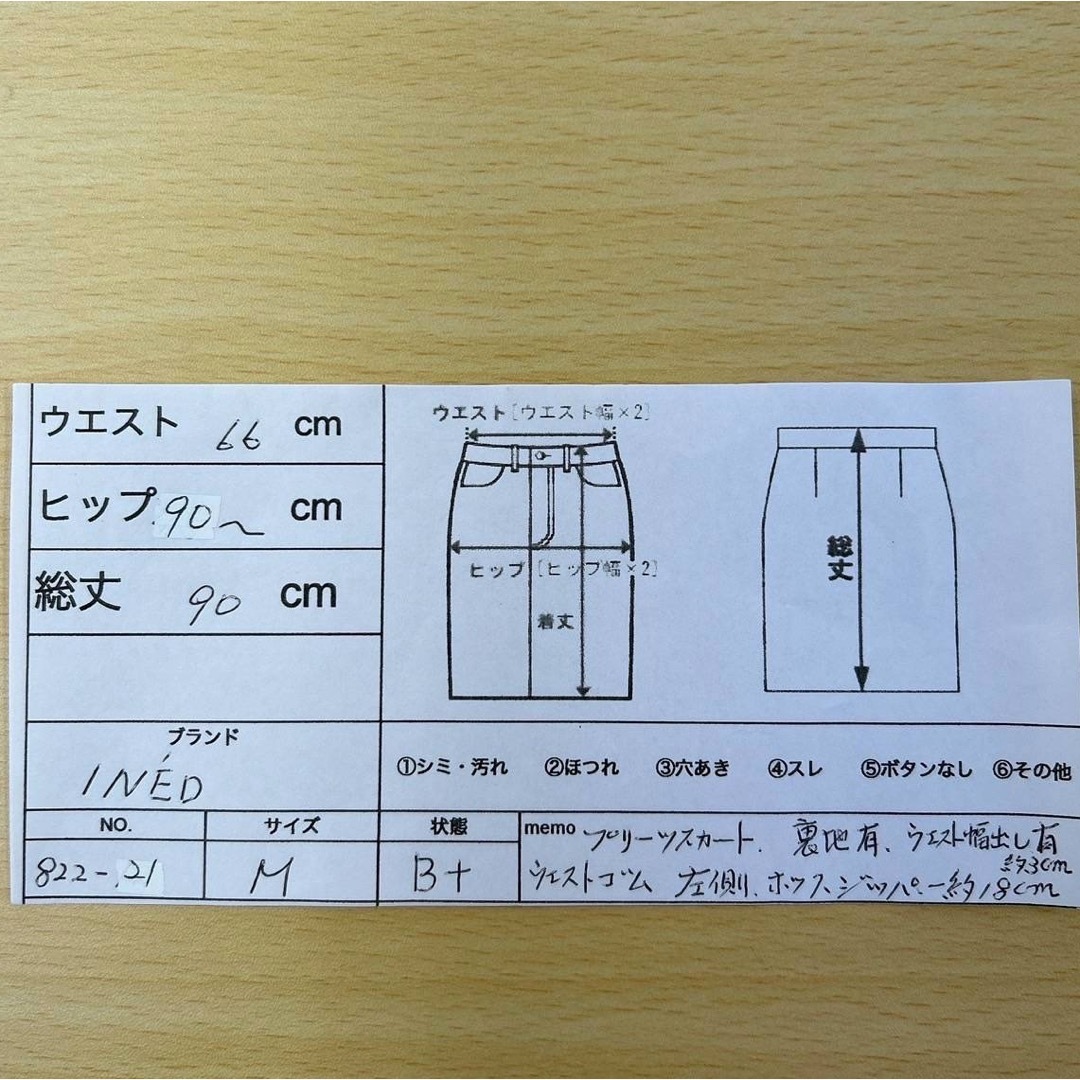 ウエスト 66 cm
ヒップ 90〜 cm
総丈 90 cm
ウエスト[ウエスト幅×2]
ヒップ[ヒップ幅×2]
着丈
総丈
ブランド
INÉD
①シミ・汚れ ②ほつれ ③穴あき ④スレ ⑤ボタンなし ⑥その他
NO. サイズ 状態
822-.21 M B+
memo プリーツスカート、裏地有、ウエスト幅出し有
約3cm
ウエストゴム 左側、ホック、ジッパー約18cm